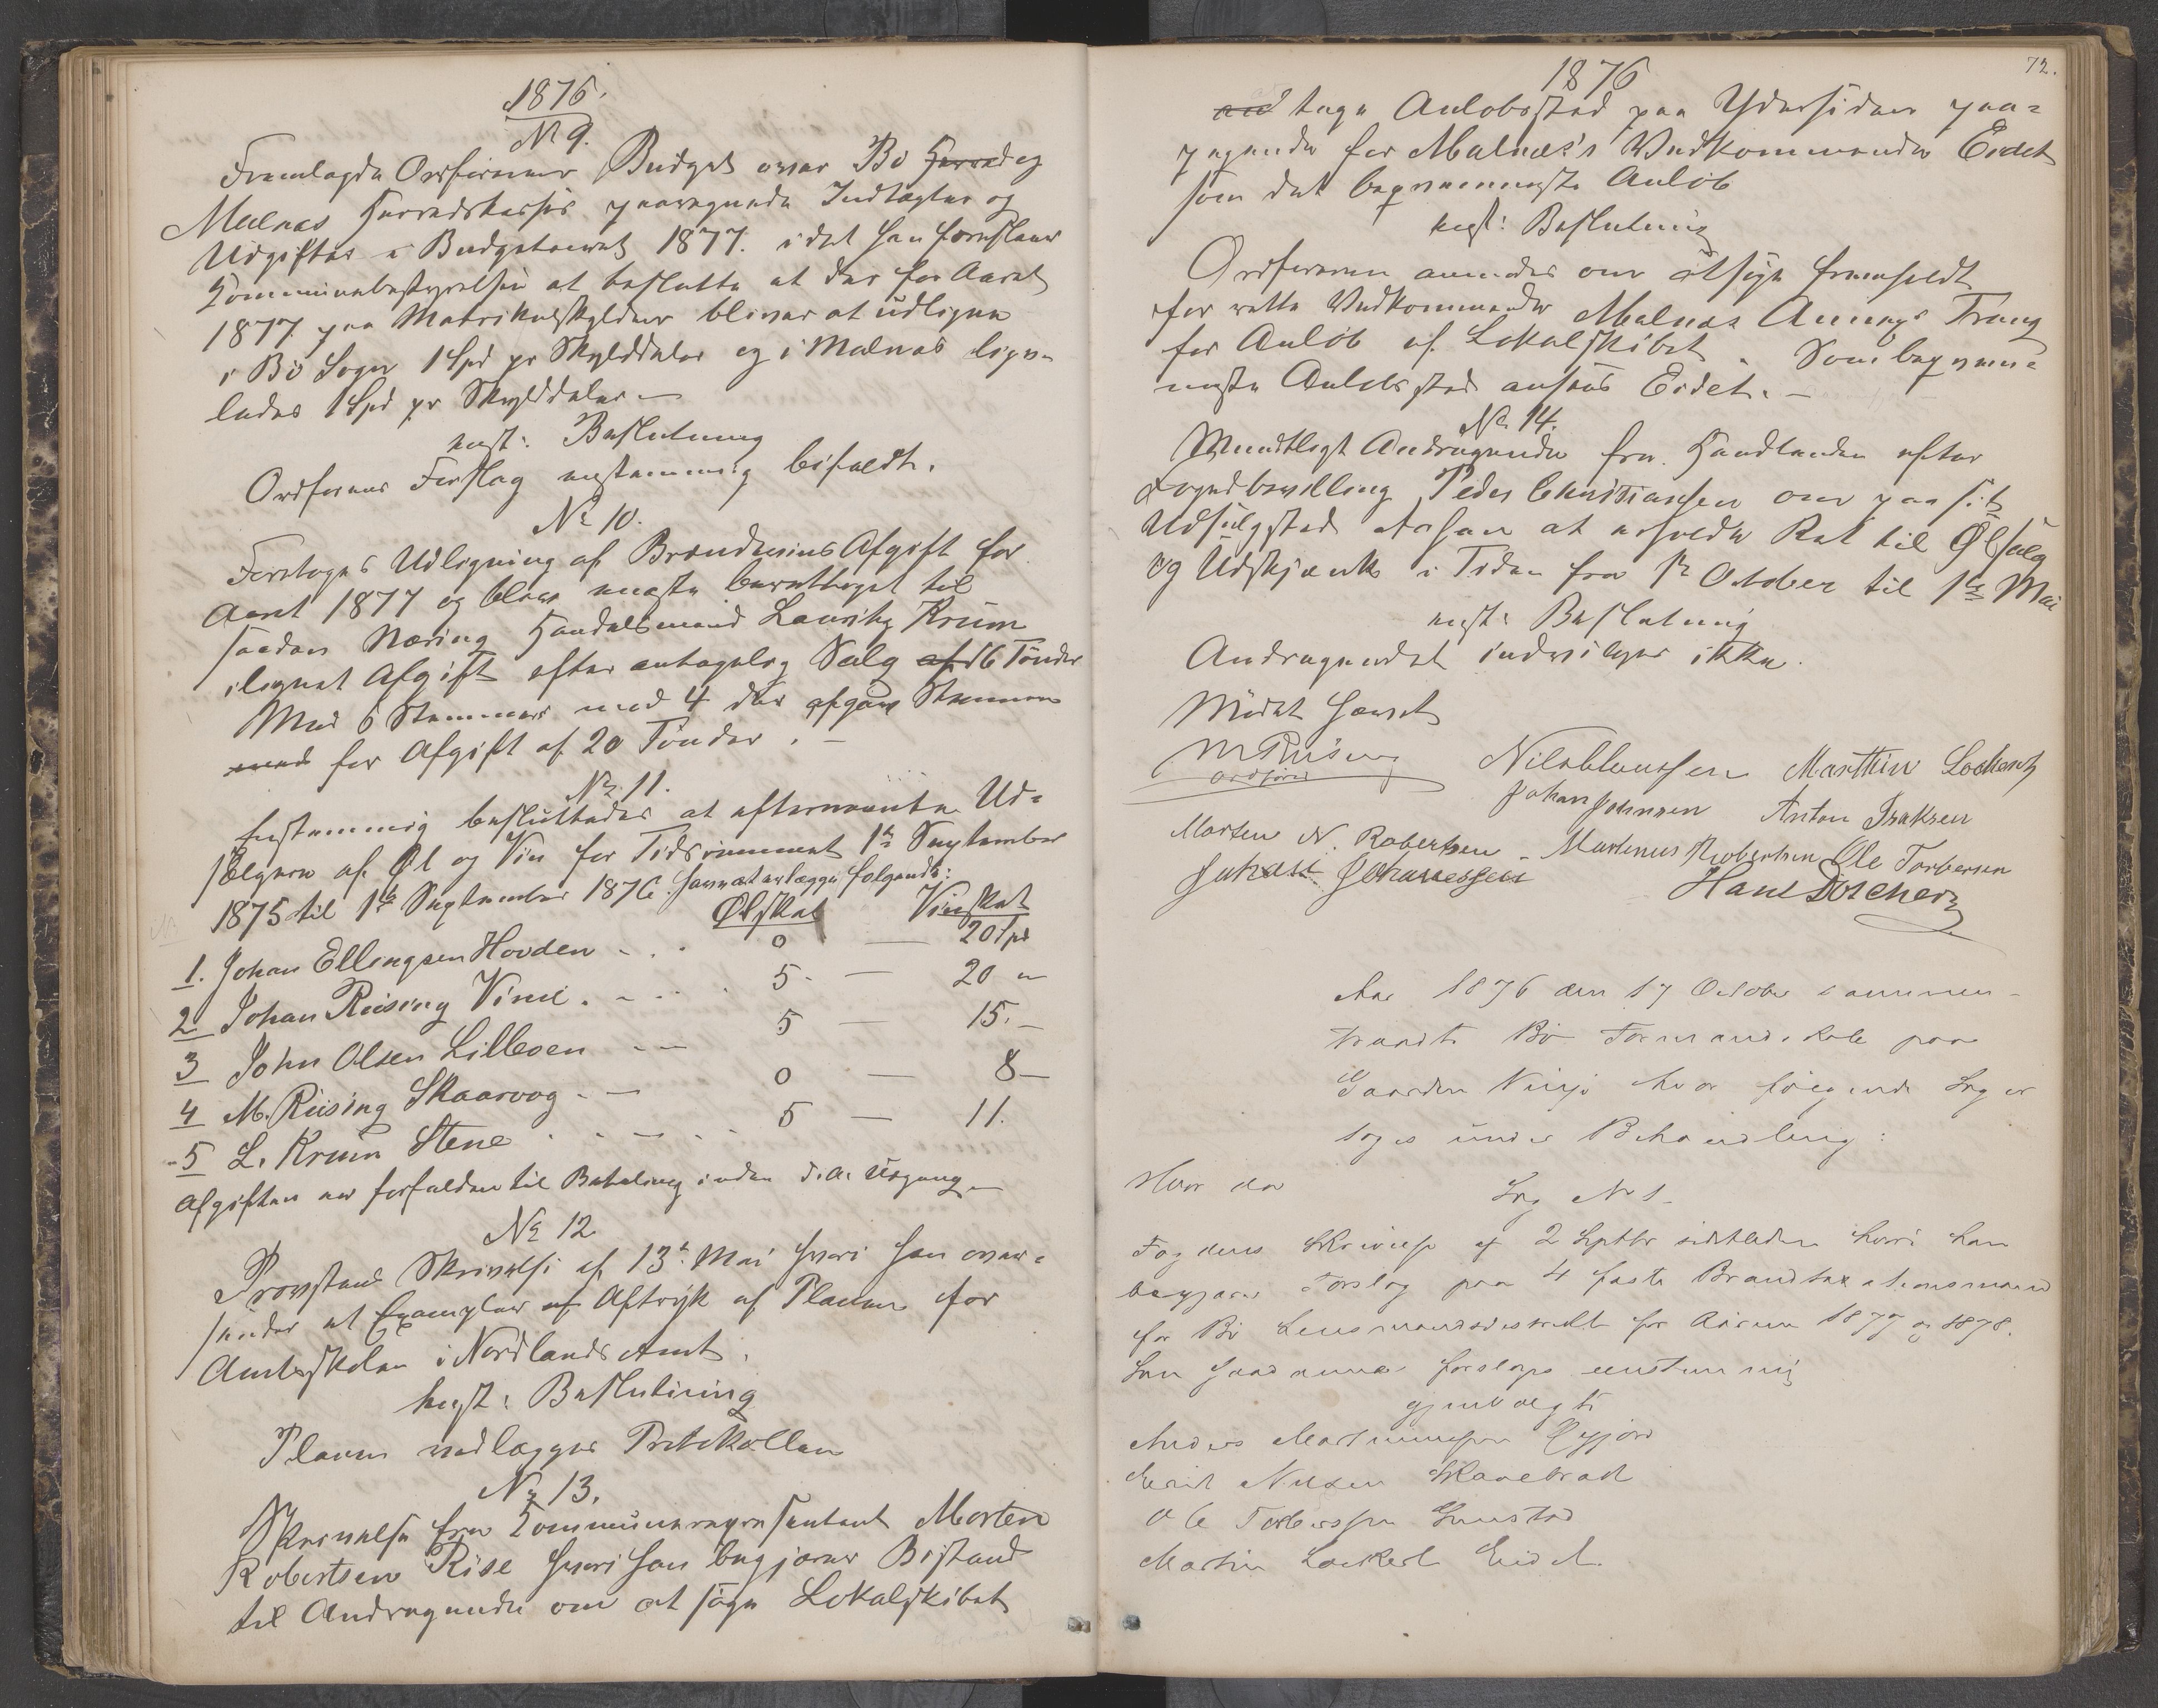 1876.
No 9.
Fremlagde Ordføreren Budget over Bö Herred og
Malnæs Herredskasses paaregnede Indtægter og
Udgifter i Budgetaaret 1877. idet han foreslaar
Kommunebestyrelsen at beslutte at der for Aaret
1877 paa Matrikulskylden bliver at udligne
i Bö Sogn 1 Spd pr Skylddaler og i Malnæs lige-
ledes 1 Spd pr Skylddaler –
enst: Beslutning
Ordførerens Forslag enstemmig bifaldt.
No 10.
Foretoges Udligning af Brændevins Afgift for
Aaret 1877 og blev eneste berettiget til
saadan Næring Handelsmand Lauritz Krüm
ilignet Afgift efter antagelig Salg af 16 Tönder
Med 6 Stemmer mod 4 der afgav Stemme
for Afgift af 20 Tönder. –
No 11.
Enstemmig besluttedes at efternævnte Ud-
sælgere af Øl og Vin for Tidsrummet 1ste September
1875 til 1ste September 1876 har at erlægge følgende:
Ølskat Vinskat
1. Johan Ellingsen Hovden - . . 0 — 20 Spd
2 Johan Riising Vinie . - . . . 5 - — 20 "
3 John Olsen Lilleven - — 5 — 15. –
4 M. Riising Skaarvog - — 0 — 8 –
5 L. Krüm Stene . . - . . 5 — 11.
Afgiften er forfalden til Betaling inden d. A. Udgang –
No 12
Provstens Skrivelse af 13de Mai hvori han over-
sender et Exemplar af Aftryk af Planen for
Amtsskolen i Nordlands Amt.
enst: Beslutning
Planen vedlægges Protokollen
No 13.
Skrivelse fra Kommunerepresentant Morten
Robertsen Rise hvori han begjærer Bistand
til Andragende om at søge Lokalskibet
72.
1876
tage Anlobssted paa Ydersiden paa-
pegende for Malnæs's Vedkommende Eidet
som det beqvemmeste Anlöb
enst: Beslutning
Ordføreren anmodes om at søge fremholdt
for rette Vedkommende Malnæs Annexs Trang
for Anlöb af Lokalskibet. Som beqvem-
meste Anlobssted ansees Eidet. –
No 14.
Mundtligt Andragende fra Handlende efter
Fogedbevilling Peder Christiansen om paa sit
Udsalgsted at erholde Ret til Ølsalg
og Udskjænk i Tiden fra 1ste October til 1ste Mai
enst: Beslutning
Andragendet indvilges ikke.
Mödet hævet
M Riising
ordförer
Nils Claussen Marthin Lockert
Johan Johnsen Anton Isaksen
Morten N. Robertsen - Martinus Robertsen Ole Torbersen
Johan Johannessen Hans Döscher
Aar 1876 den 17 October sammen-
traadte Bö Formandskab paa
Gaarden Vinje hvor fölgende Sager
toges under Behandling:
Hvor da
Sag No 1.
Fogdens Skrivelse af 2 Septbr sidstleden hvori han
begjærer Forslag paa 4 faste Brandtaxationsmænd
for Bö Lensmandsdistrikt for Aarene 1877 og 1878.
Som saadanne forslages eenstemmig
gjenvalgte
Anders Nilsen Skagebrod
Ole Torbersen Gunstad
Martin Lockert Eidet